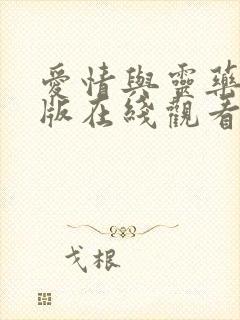 愛情與靈藥
版在綫觀看
戈根